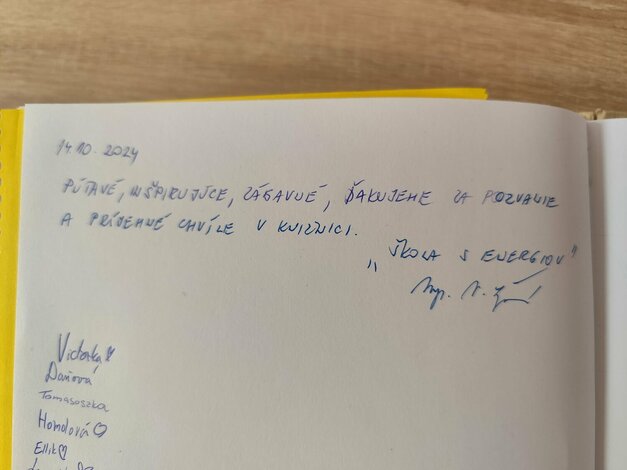 14.10.2024
PÚTAVÉ, INŠPIRUJÚCE, ZÁBAVNÉ, ĎAKUJEME ZA POZVANIE
A PRÍJEMNÉ CHVÍLE V KNIŽNICI.
„ŠKOLA S ENERGIOU"
Viktorka
Daňová
Tomasoszka
Homolová ♡
Ellik ♡